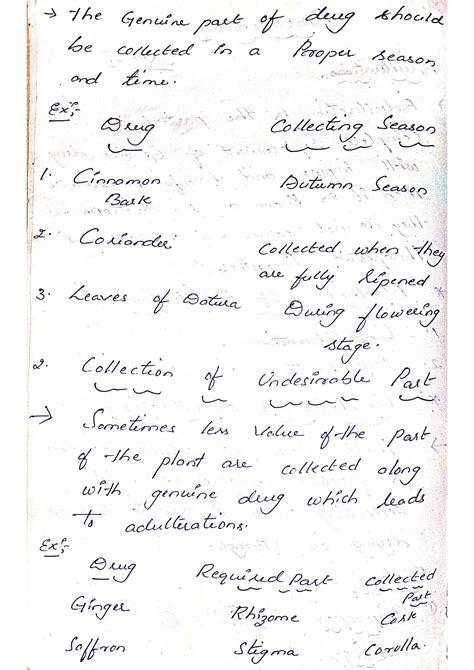 → The Genuine part of drug should
be collected in a Proper season
and time.
Ex:-
Drug Collecting Season
1. Cinnamon Autumn Season
Bark
2. Coriander Collected when they
are fully ripened
3. Leaves of Datura During flowering
stage.
2. Collection of Undesirable Part
→ Sometimes less value of the part
of the plant are collected along
with genuine drug which leads
to adulterations.
Ex:-
Drug Required Part collected
Part
Ginger Rhizome Cork
Saffron Stigma Corolla.